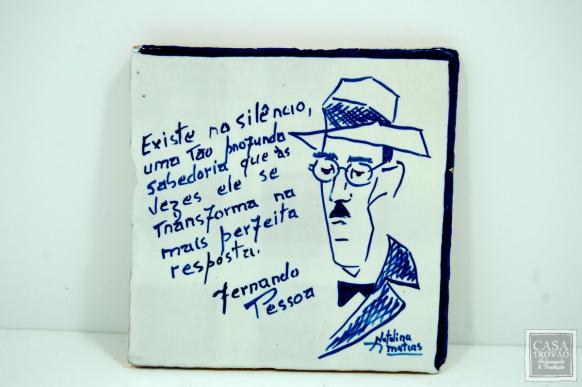 Existe no silêncio,
uma tão profunda
sabedoria que às
vezes ele se
transforma na
mais perfeita
resposta.
Fernando
Pessoa
Natalina
matias
CASA
TROVÃO
Artesanato
& Tradição